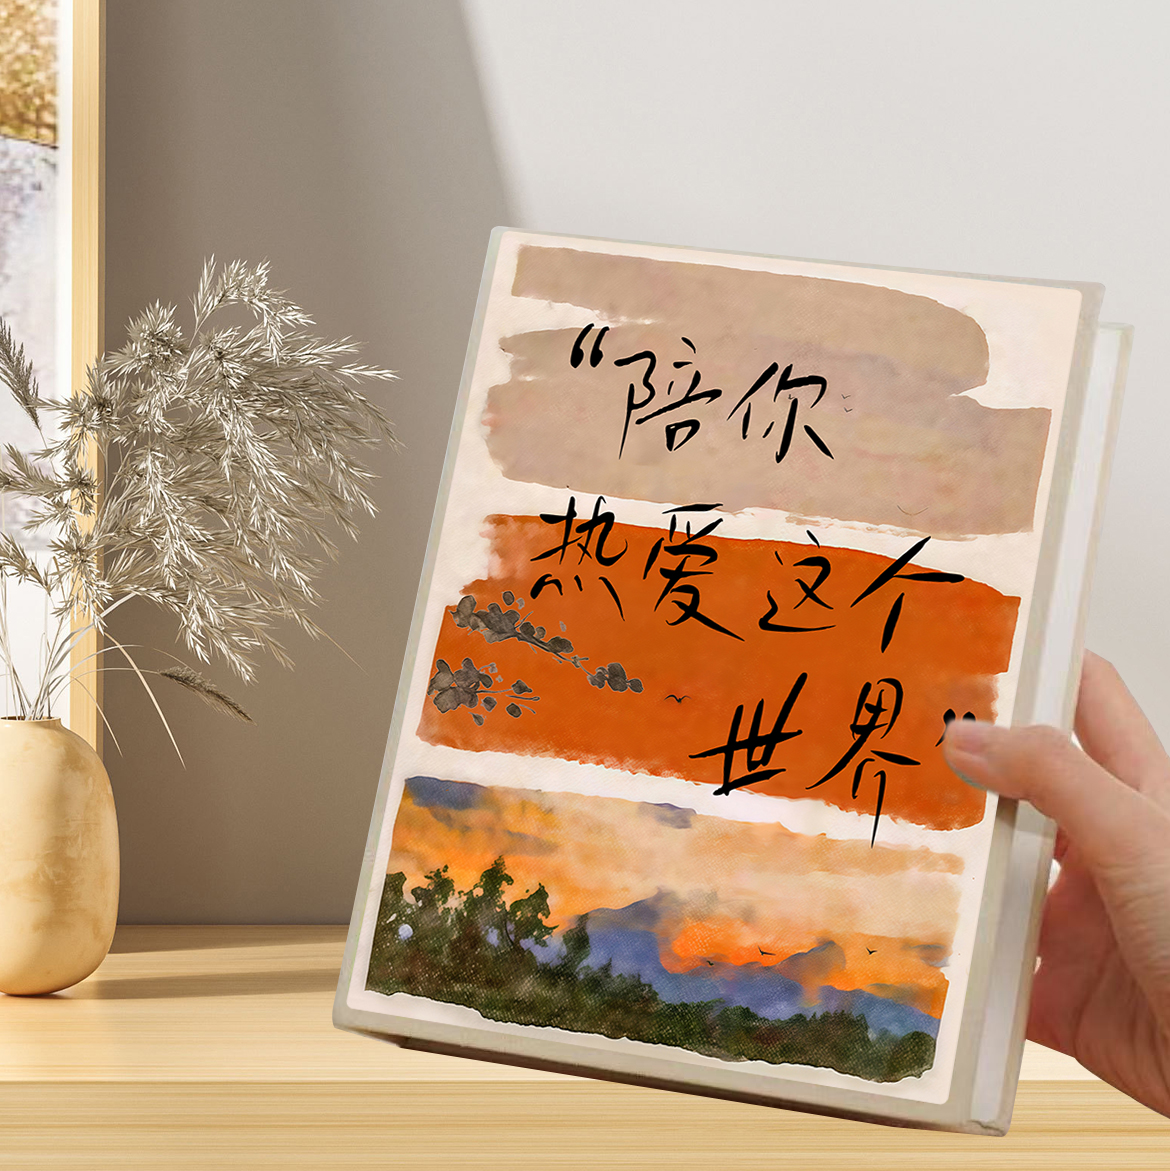 “陪你
热爱这个
世界”